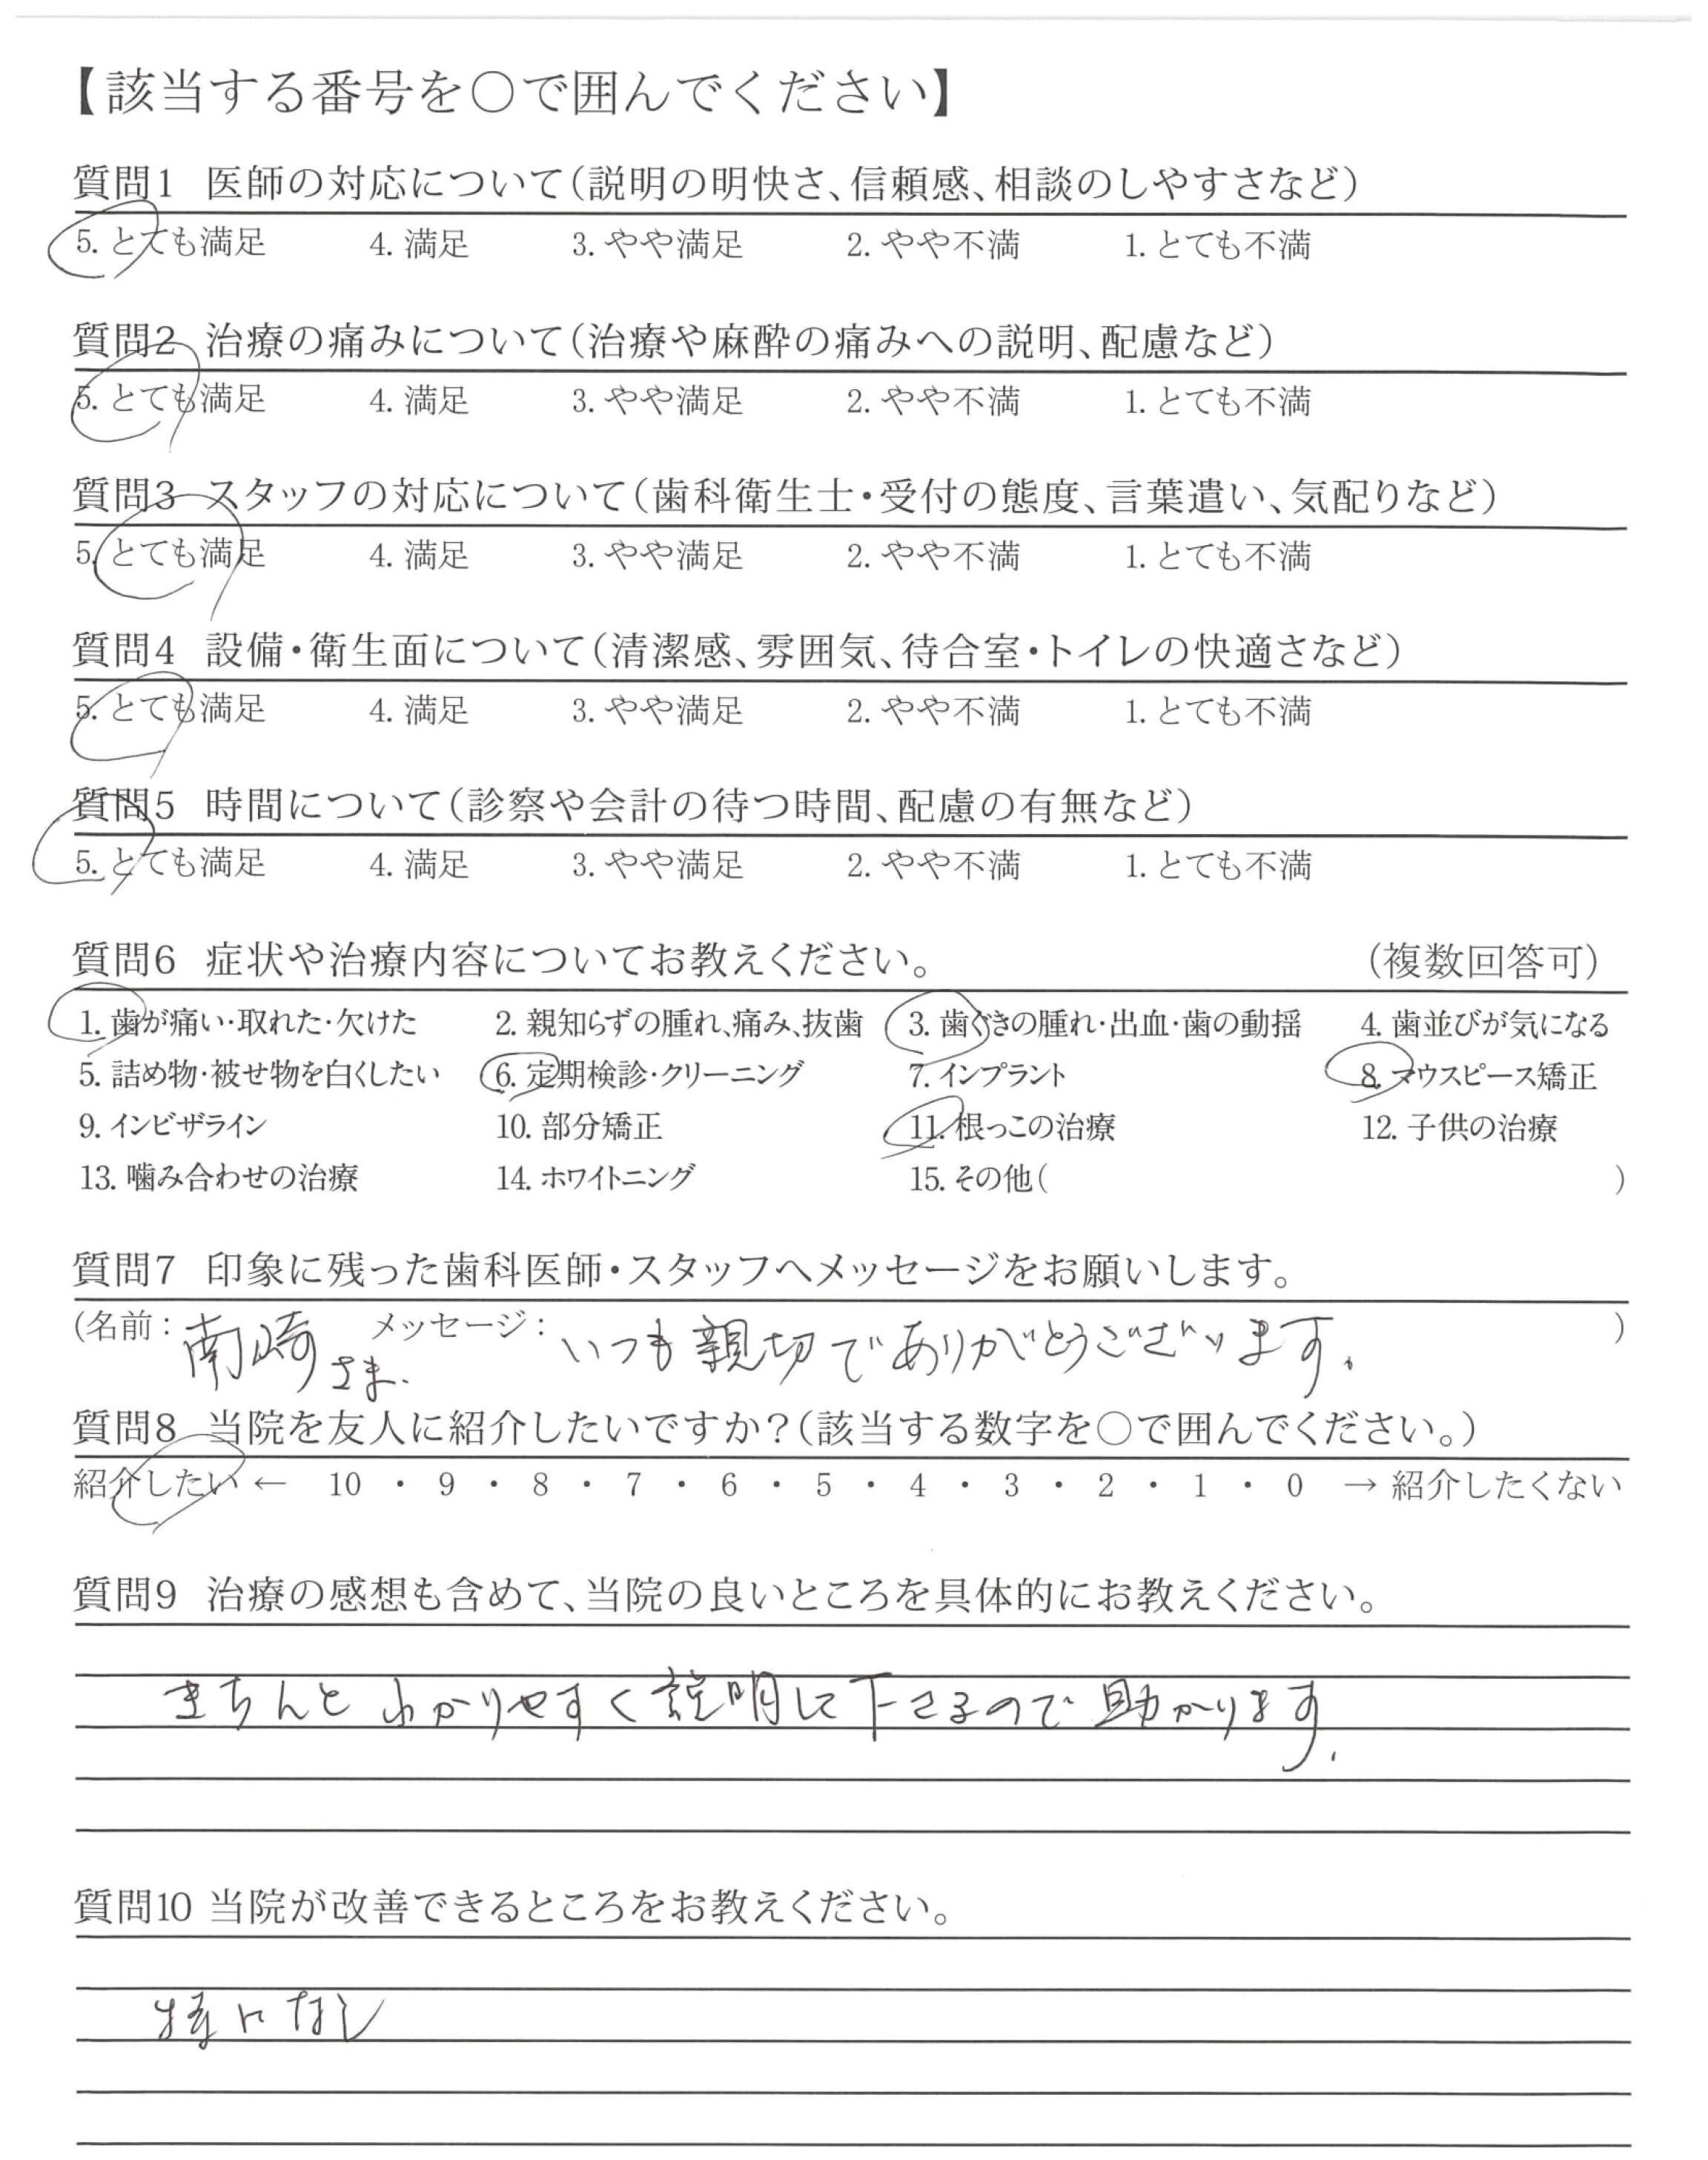 【該当する番号を○で囲んでください】
質問1 医師の対応について(説明の明快さ、信頼感、相談のしやすさなど)
5. とても満足 4. 満足 3. やや満足 2. やや不満 1. とても不満
質問2 治療の痛みについて(治療や麻酔の痛みへの説明、配慮など)
5. とても満足 4. 満足 3. やや満足 2. やや不満 1. とても不満
質問3 スタッフの対応について(歯科衛生士・受付の態度、言葉遣い、気配りなど)
5. とても満足 4. 満足 3. やや満足 2. やや不満 1. とても不満
質問4 設備・衛生面について(清潔感、雰囲気、待合室・トイレの快適さなど)
5. とても満足 4. 満足 3. やや満足 2. やや不満 1. とても不満
質問5 時間について(診察や会計の待つ時間、配慮の有無など)
5. とても満足 4. 満足 3. やや満足 2. やや不満 1. とても不満
質問6 症状や治療内容についてお教えください。 (複数回答可)
1. 歯が痛い・取れた・欠けた 2. 親知らずの腫れ、痛み、抜歯 3. 歯ぐきの腫れ・出血・歯の動揺 4. 歯並びが気になる
5. 詰め物・被せ物を白くしたい 6. 定期検診・クリーニング 7. インプラント 8. マウスピース矯正
9. インビザライン 10. 部分矯正 11. 根っこの治療 12. 子供の治療
13. 噛み合わせの治療 14. ホワイトニング 15. その他( )
質問7 印象に残った歯科医師・スタッフへメッセージをお願いします。
(名前: 南崎さま. メッセージ: いつも親切でありがとうございます. )
質問8 当院を友人に紹介したいですか?(該当する数字を○で囲んでください。)
紹介したい ← 10 ・ 9 ・ 8 ・ 7 ・ 6 ・ 5 ・ 4 ・ 3 ・ 2 ・ 1 ・ 0 → 紹介したくない
質問9 治療の感想も含めて、当院の良いところを具体的にお教えください。
きちんとわかりやすく説明して下さるので助かります.
質問10 当院が改善できるところをお教えください。
特になし